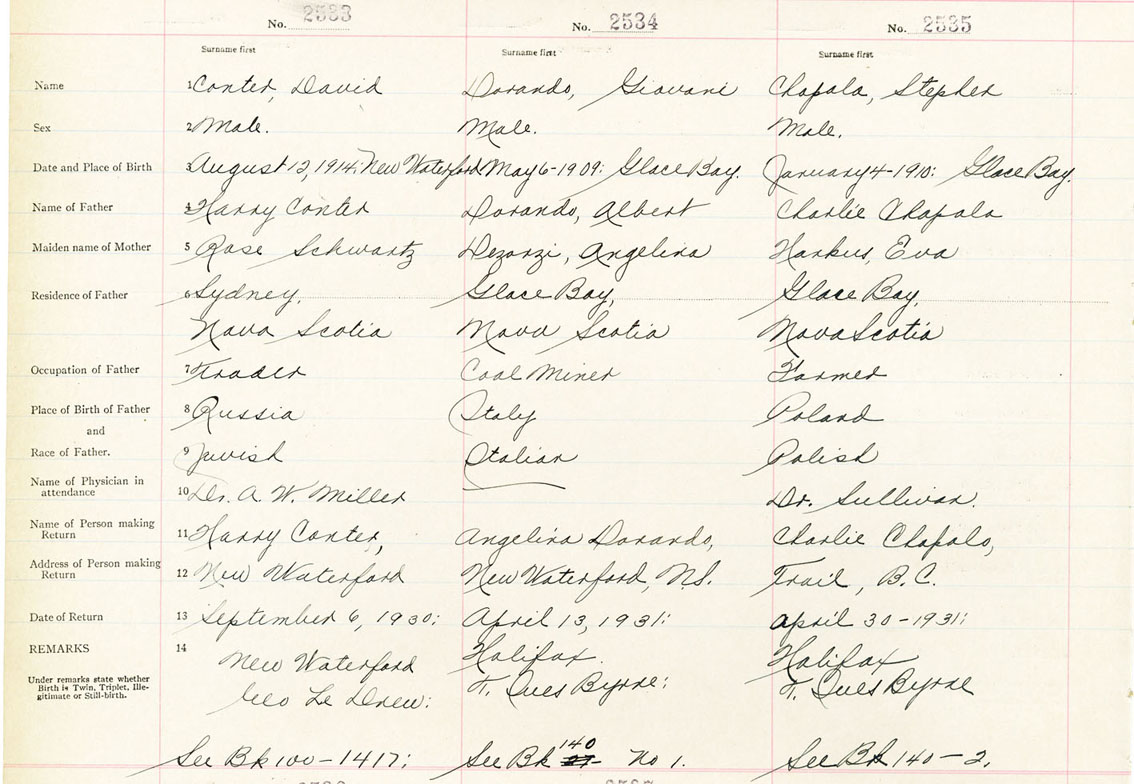 No. 2533 No. 2534 No. 2535
Surname first Surname first Surname first
Name 1 Conter, David Dorando, Giovani Chapala, Stephen
Sex 2 Male. Male. Male.
Date and Place of Birth 3 August 12, 1914: New Waterford May 6-1909: Glace Bay. January 4-1910: Glace Bay.
Name of Father 4 Harry Conter Dorando, Albert Charlie Chapala
Maiden name of Mother 5 Rose Schwartz Dezorzi, Angelina Harkus, Eva
Residence of Father 6 Sydney, Glace Bay, Glace Bay,
Nova Scotia Nova Scotia Nova Scotia
Occupation of Father 7 Trader Coal Miner Farmer
Place of Birth of Father 8 Russia Italy Poland
and
Race of Father. 9 Jewish Italian Polish
Name of Physician in
attendance 10 Dr. A. W. Miller Dr. Sullivan.
Name of Person making
Return 11 Harry Conter, Angelina Dorando, Charlie Chapala,
Address of Person making
Return 12 New Waterford New Waterford, N.S. Trail, B.C.
Date of Return 13 September 6, 1930: April 13, 1931: April 30-1931:
REMARKS 14 New Waterford Halifax. Halifax
Under remarks state whether
Birth is Twin, Triplet, Ille-
gitimate or Still-birth.
Geo Le Drew: T. Ives Byrne: T. Ives Byrne
See Bk 100-1417: See Bk 140 No 1. See Bk 140-2.